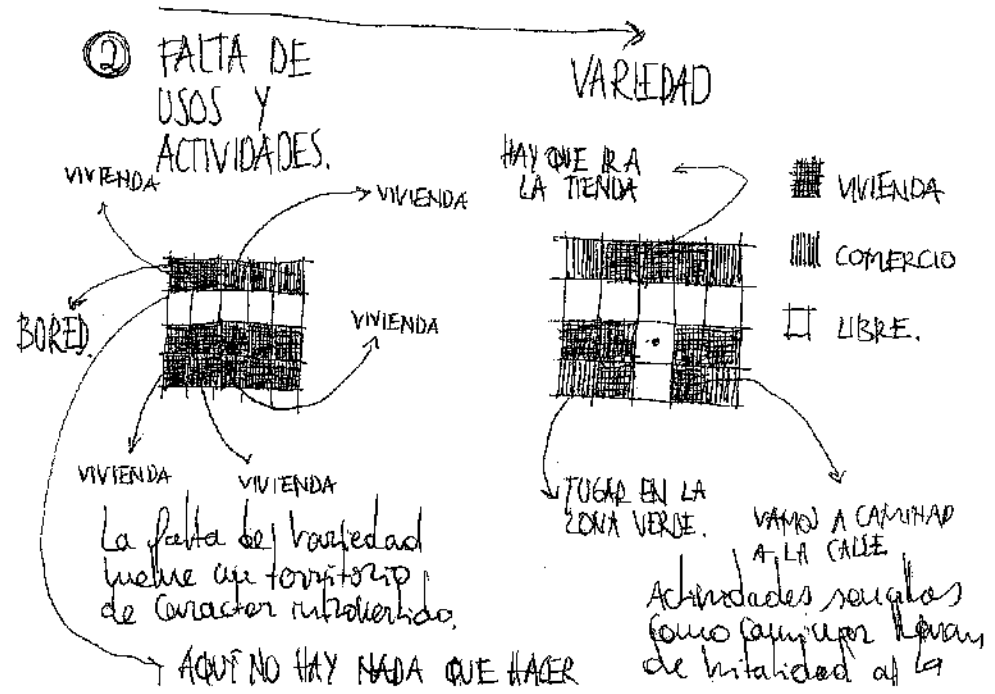 ② FALTA DE
USOS Y
ACTIVIDADES.
VARIEDAD
VIVIENDA
VIVIENDA
BORED.
VIVIENDA
VIVIENDA
VIVIENDA
La falta de variedad
vuelve un territorio
de caracter introvertido.
AQUÍ NO HAY NADA QUE HACER
HAY QUE IR A
LA TIENDA
VIVIENDA
COMERCIO
LIBRE.
JUGAR EN LA
ZONA VERDE.
VAMOS A CAMINAR
A LA CALLE
Actividades sencillas
como caminar llenan
de vitalidad al